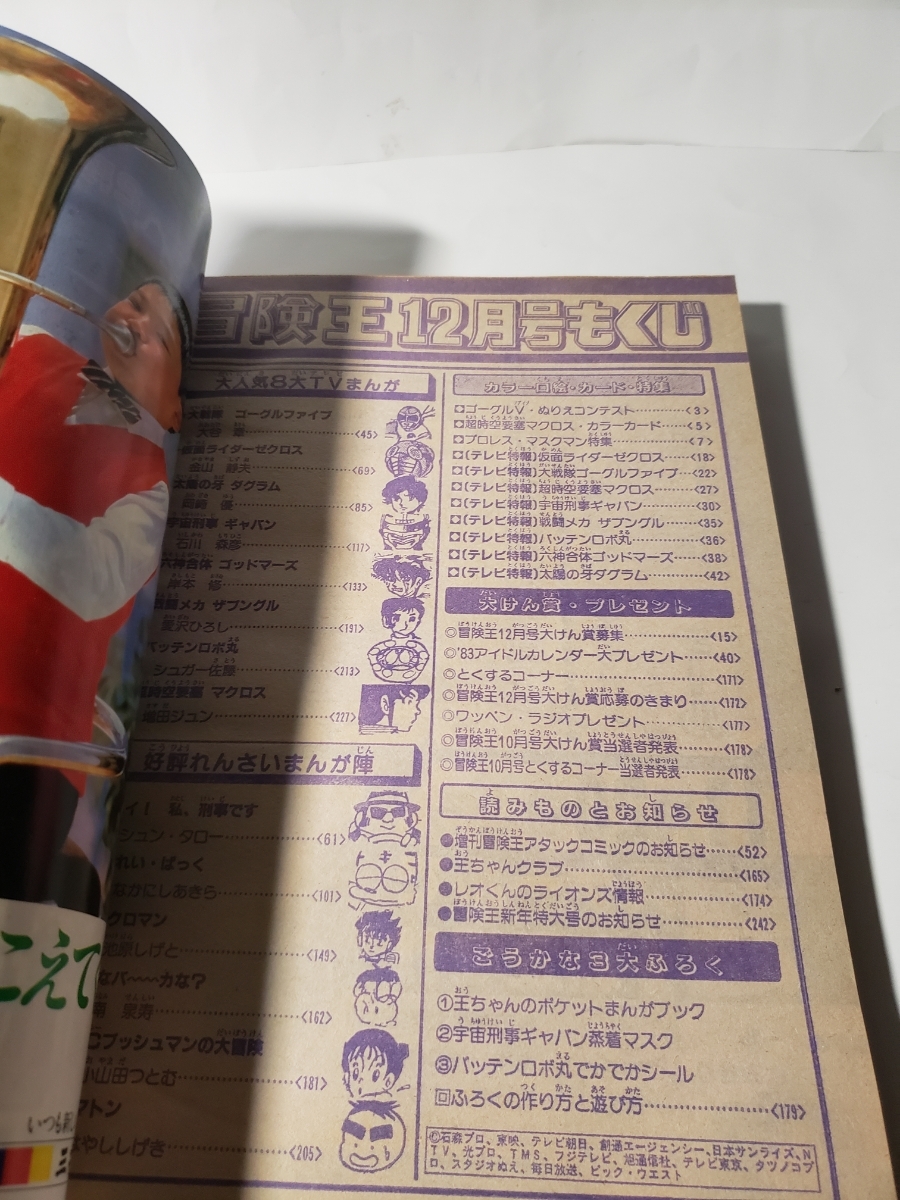 冒険王12月号もくじ
大人気8大TVまんが
大戦隊 ゴーグルファイブ
<45>
仮面ライダーゼクロス
金山 静夫……<69>
太陽の牙 ダグラム
岡崎 優……<85>
宇宙刑事 ギャバン
石川 森彦……<117>
六神合体 ゴッドマーズ
岸本 修……<133>
戦闘メカ ザブングル
愛沢ひろし……<191>
バッテンロボ丸
シュガー佐藤……<213>
超時空要塞 マクロス
増田ジュン……<227>
好評れんさいまんが陣
イ! 私、刑事です
シュン・タロー……<61>
れい・ばっく
なかにしあきら……<101>
クロマン
池原しげと……<149>
なバ〜〜カな?
<162>
プッシュマンの大冒険
小山田つとむ……<181>
アトン
はやししげき……<205>
カラー口絵・カード・特集
ゴーグルV・ぬりえコンテスト……<3>
超時空要塞マクロス・カラーカード……<5>
プロレス・マスクマン特集……<7>
(テレビ特報)仮面ライダーゼクロス……<18>
(テレビ特報)大戦隊ゴーグルファイブ……<22>
(テレビ特報)超時空要塞マクロス……<27>
(テレビ特報)宇宙刑事ギャバン……<30>
(テレビ特報)戦闘メカ ザブングル……<35>
(テレビ特報)バッテンロボ丸……<36>
(テレビ特報)六神合体ゴッドマーズ……<38>
(テレビ特報)太陽の牙ダグラム……<42>
大けん賞・プレゼント
◎冒険王12月号大けん賞募集……<15>
◎'83アイドルカレンダー大プレゼント……<40>
◎とくするコーナー……<171>
◎冒険王12月号大けん賞応募のきまり……<172>
◎ワッペン・ラジオプレゼント……<177>
◎冒険王10月号大けん賞当選者発表……<178>
◎冒険王10月号とくするコーナー当選者発表……<178>
読みものとお知らせ
●増刊冒険王アタックコミックのお知らせ……<52>
●王ちゃんクラブ……<165>
●レオくんのライオンズ情報……<174>
●冒険王新年特大号のお知らせ……<242>
ごうかな3大ふろく
①王ちゃんのポケットまんがブック
②宇宙刑事ギャバン蒸着マスク
③バッテンロボ丸でかでかシール
回ふろくの作り方と遊び方……<179>
©石森プロ、東映、テレビ朝日、創通エージェンシー、日本サンライズ、N
TV、光プロ、TMS、フジテレビ、旭通信社、テレビ東京、タツノコプ
ロ、スタジオぬえ、毎日放送、ビック・ウエスト
こえて